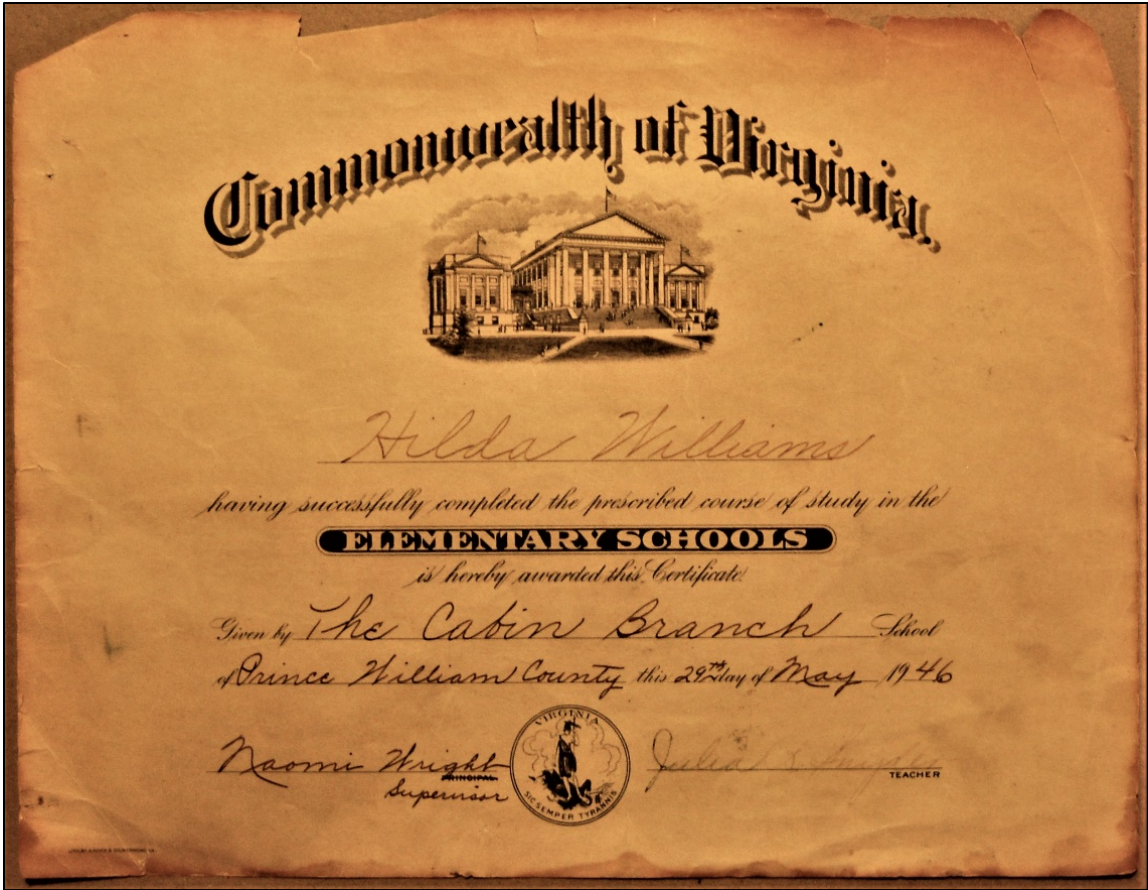 Commonwealth of Virginia.
Hilda Williams
having successfully completed the prescribed course of study in the
ELEMENTARY SCHOOLS
is hereby awarded this Certificate
Given by The Cabin Branch School
of Prince William County this 29th day of May 1946
Naomi Wright
PRINCIPAL
Supervisor
VIRGINIA
SIC SEMPER TYRANNIS
Julia
TEACHER